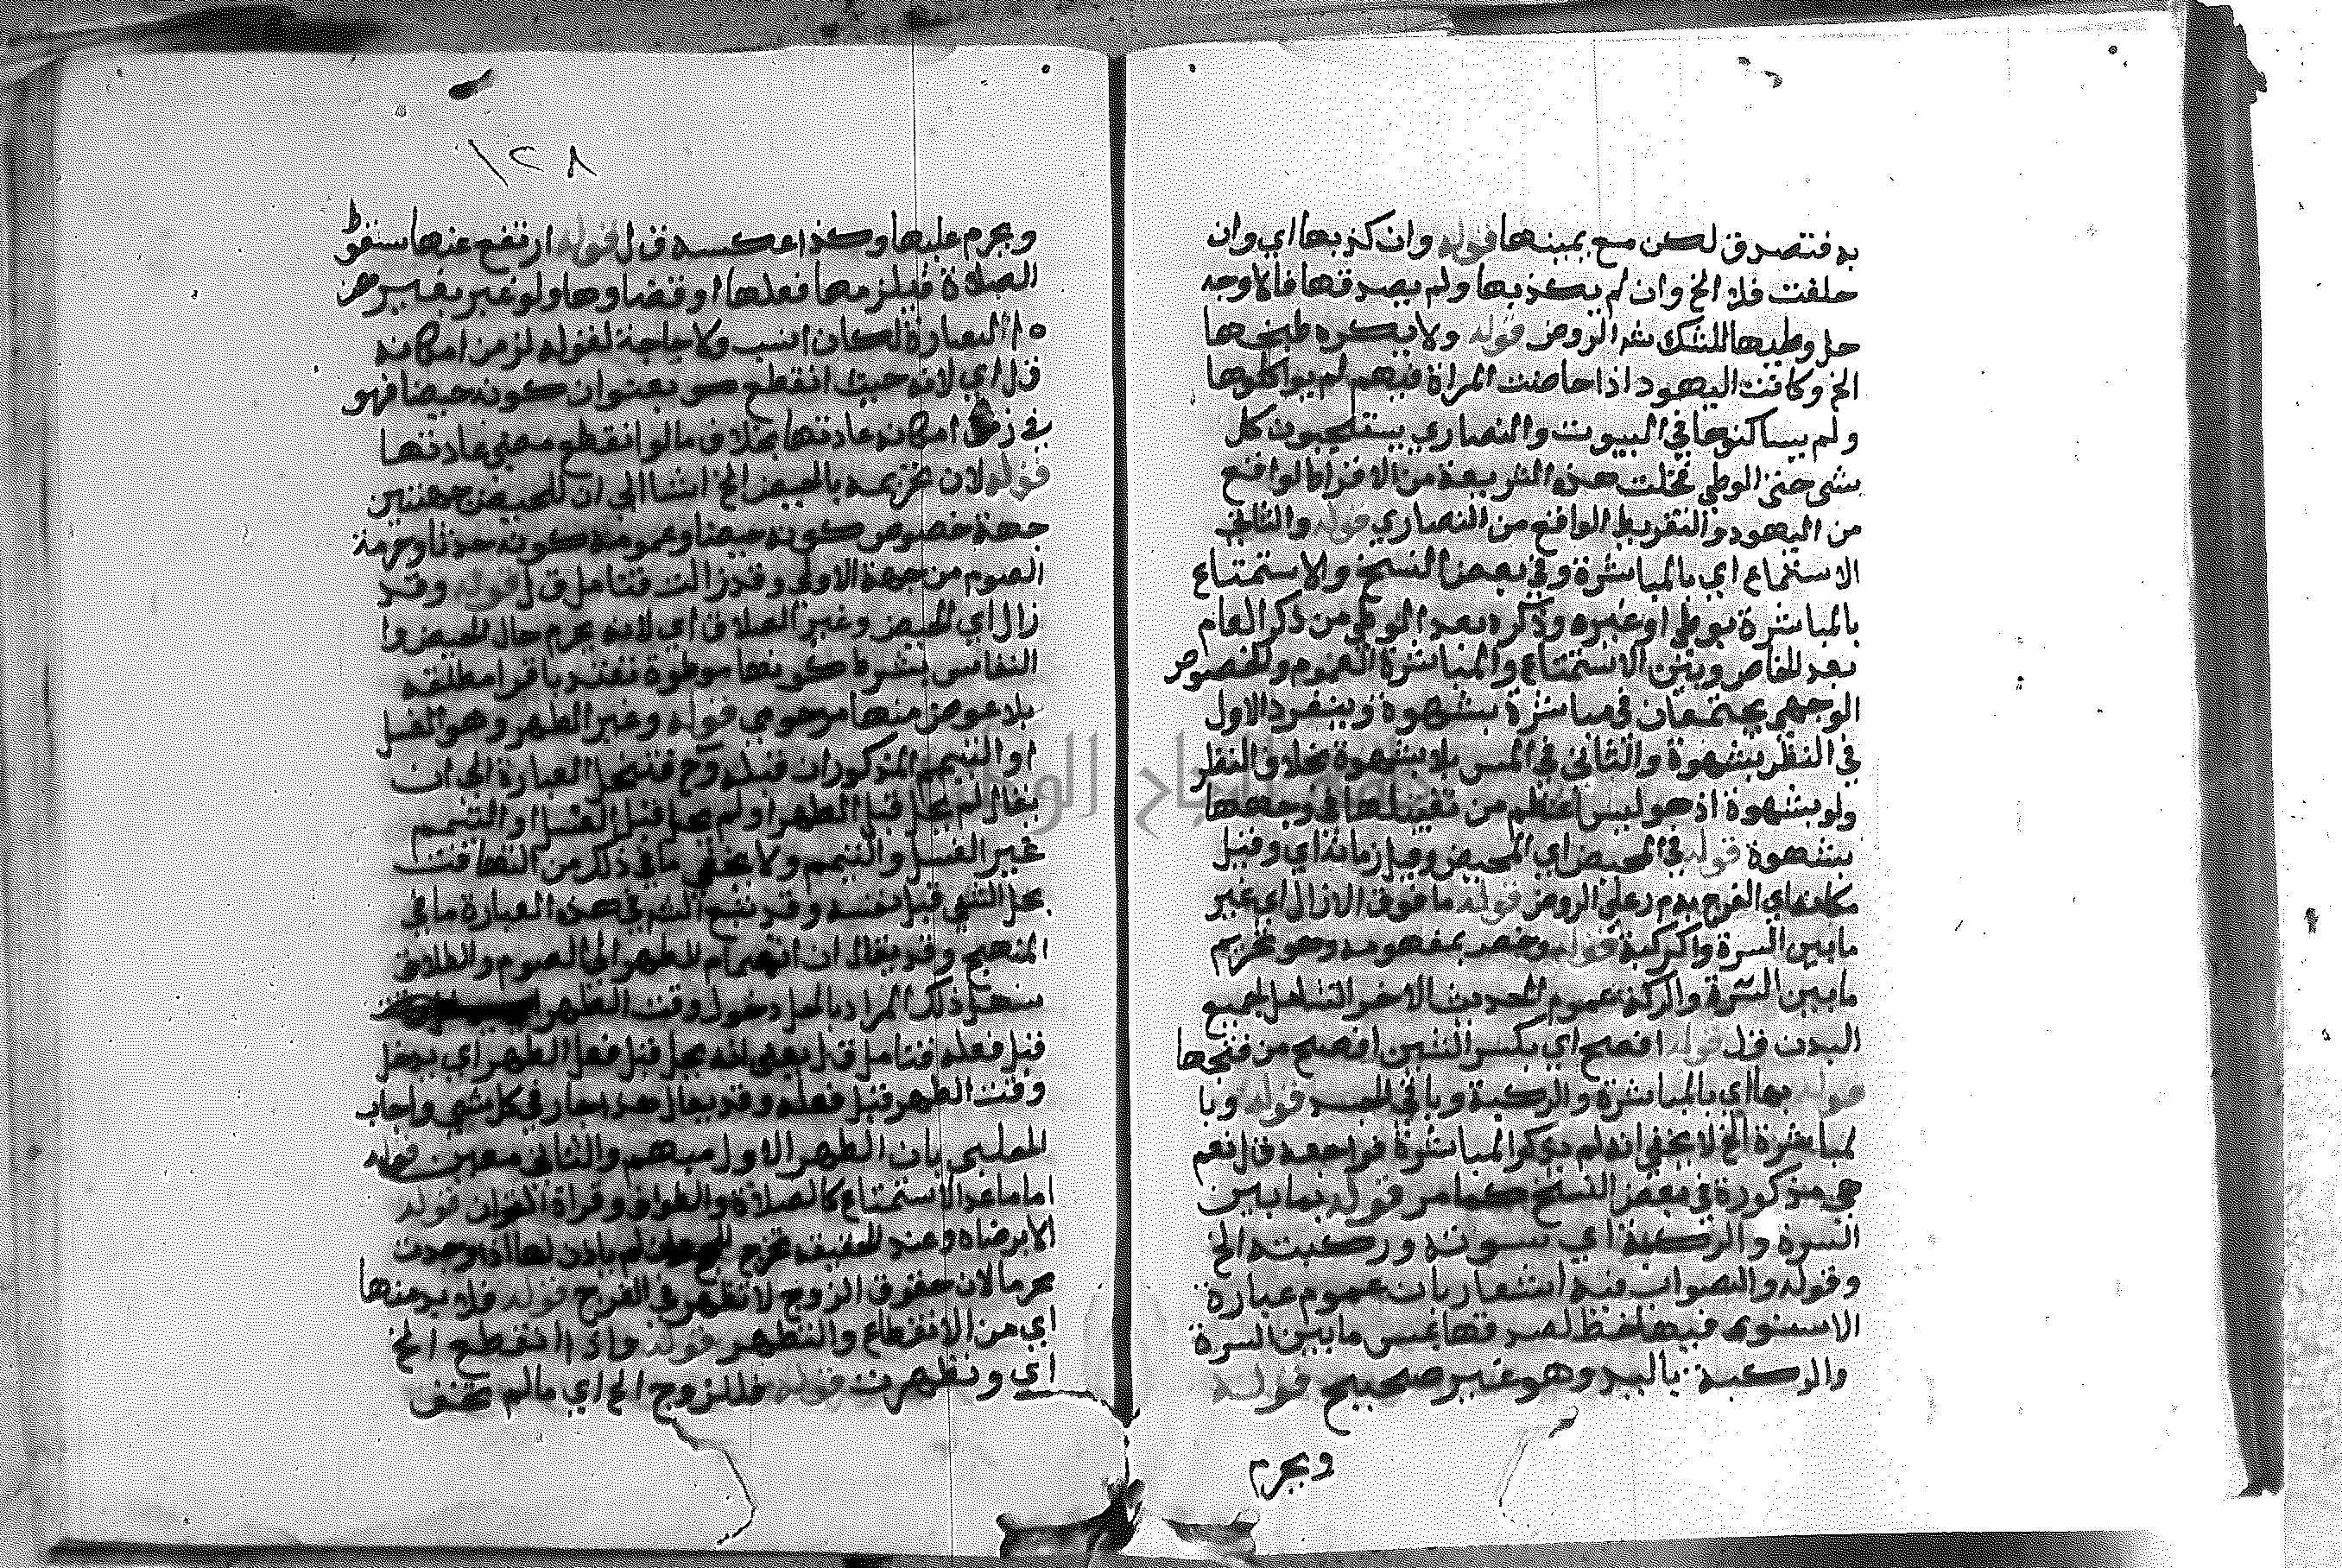 به فتصدق لكن مع يمينها قوله وان كذبها اي وان
حلفت فلا الخ وان لم يكذبها ولم يصدقها فالاوجه
حل وطيها للشك شر الروض قوله ولا يكره طبخها
الخ وكانت اليهود اذا حاضت المراة فيهم لم يواكلوها
ولم يساكنوها في البيوت والنصاري يستحبون كل
شي حتي الوطي فخلت هذه الشريعة من الافراط الواقع
من اليهود والتفريط الواقع من النصاري قوله والثاني
الاستمتاع اي بالمباشرة وفي بعض النسخ والاستمتاع
بالمباشرة بوطي او غيره وذكره بعد الوطي من ذكر العام
بعد الخاص وبين الاستمتاع والمباشرة العموم والخصوص
الوجهي يجتمعان في مباشرة بشهوة وينفرد الاول
في النظر بشهوة والثاني في المس بلا بشهوة بخلاف النظر
ولو بشهوة اذ هو ليس اعظم من تقبيلها في وجهها
بشهوة قوله في المحيض اي الحيض وقيل زمانه اي وقيل
مكانه اي الفرج م ر علي الروض قوله ما فوق الازار اي غير
ما بين السرة والركبة قوله وخص بمفهومه وهو تحريم
ما بين السرة والركبة عموم الحديث الاخر الشامل لجميع
البدن قل قوله افصح اي بكسر التنين افصح من فتحها
قوله بها اي بالمباشرة والركبة وباقي الجسد قوله وبا
لمباشرة الخ لا يخفي انه لم يذكر المباشرة فراجعه ق ل نعم
هي مذكورة في بعض النسخ كما مر قوله بما بين
السرة والركبة اي سوته وركبته الخ
وقوله والصواب فيه اشعار بان عموم عبارة
الاسنوي فيها لفظ لصدقها بمس ما بين السرة
والركبة باليد وهو غير صحيح قوله
ويحرم
١٢٨
ويحرم عليها وكذا عكسه ق ل قوله ارتفع عنها سقوط
الصلاة فيلزمها فعلها او قضاوها ولو عبر بغير هـ
ه العبارة لكان انسب ولا حاجة لقوله لزمن امكانه
ق ل اي لانه حيث انقطع هو بعنوان كونه حيضا فهو
في زمن امكانه عادتها بخلاف ما لو انقطع عادتها
قوله لان تحريمه بالحيض الخ اشار الي ان للحيض جهتين
جهة خصوص كونه حيضا وعمومه كونه حدثا وحرمة
الصوم من جهة الاولي وقد زالت فتامل ق ل قوله وقد
زال اي الحيض وغير الصلاة اي لانه يحرم حال الحيض وا
النفاس بشرط كونها موطوة تفتد باقرا مطلقة
بلا عوض منها مرحومي قوله وغير الطهر وهو الغسل
او التيمم المذكوران قبله وح فتنحل العبارة الي ان
يقال لم يحل قبل الطهر او لم يحل قبل الغسل او التيمم
غير الغسل والتيمم ولا يخفي ما في ذلك من التهافت
بحل الشي قبل نفسه وقد تبع الشر في هذه العبارة ما في
المنهج وقد يقال ان انضمام الطهر الي الصوم والطلاق
سهل ذلك المراد بالحل دخول وقت الطهر
قبل فعله فتامل ق ل يعني انه يحل قبل فعل الطهر اي يدخل
وقت الطهر قبل فعله وقد يقال هذا جار في كل شي واجاب
الحلبي بان الطهر الاول مبهم والثاني معين قوله
اما ما عدا الاستمتاع كالصلاة والطواف وقراة القران قوله
الا برضاه وعند لم ياذن لها اذا وجدت
محرما لان حقوق الزوج لا تظهر في الفرج قوله فلا بد منها
اي من الانقطاع والتطهر قوله واذا انقطع الخ
اي وتطهرت قوله فللزوج الخ اي مالم تخف